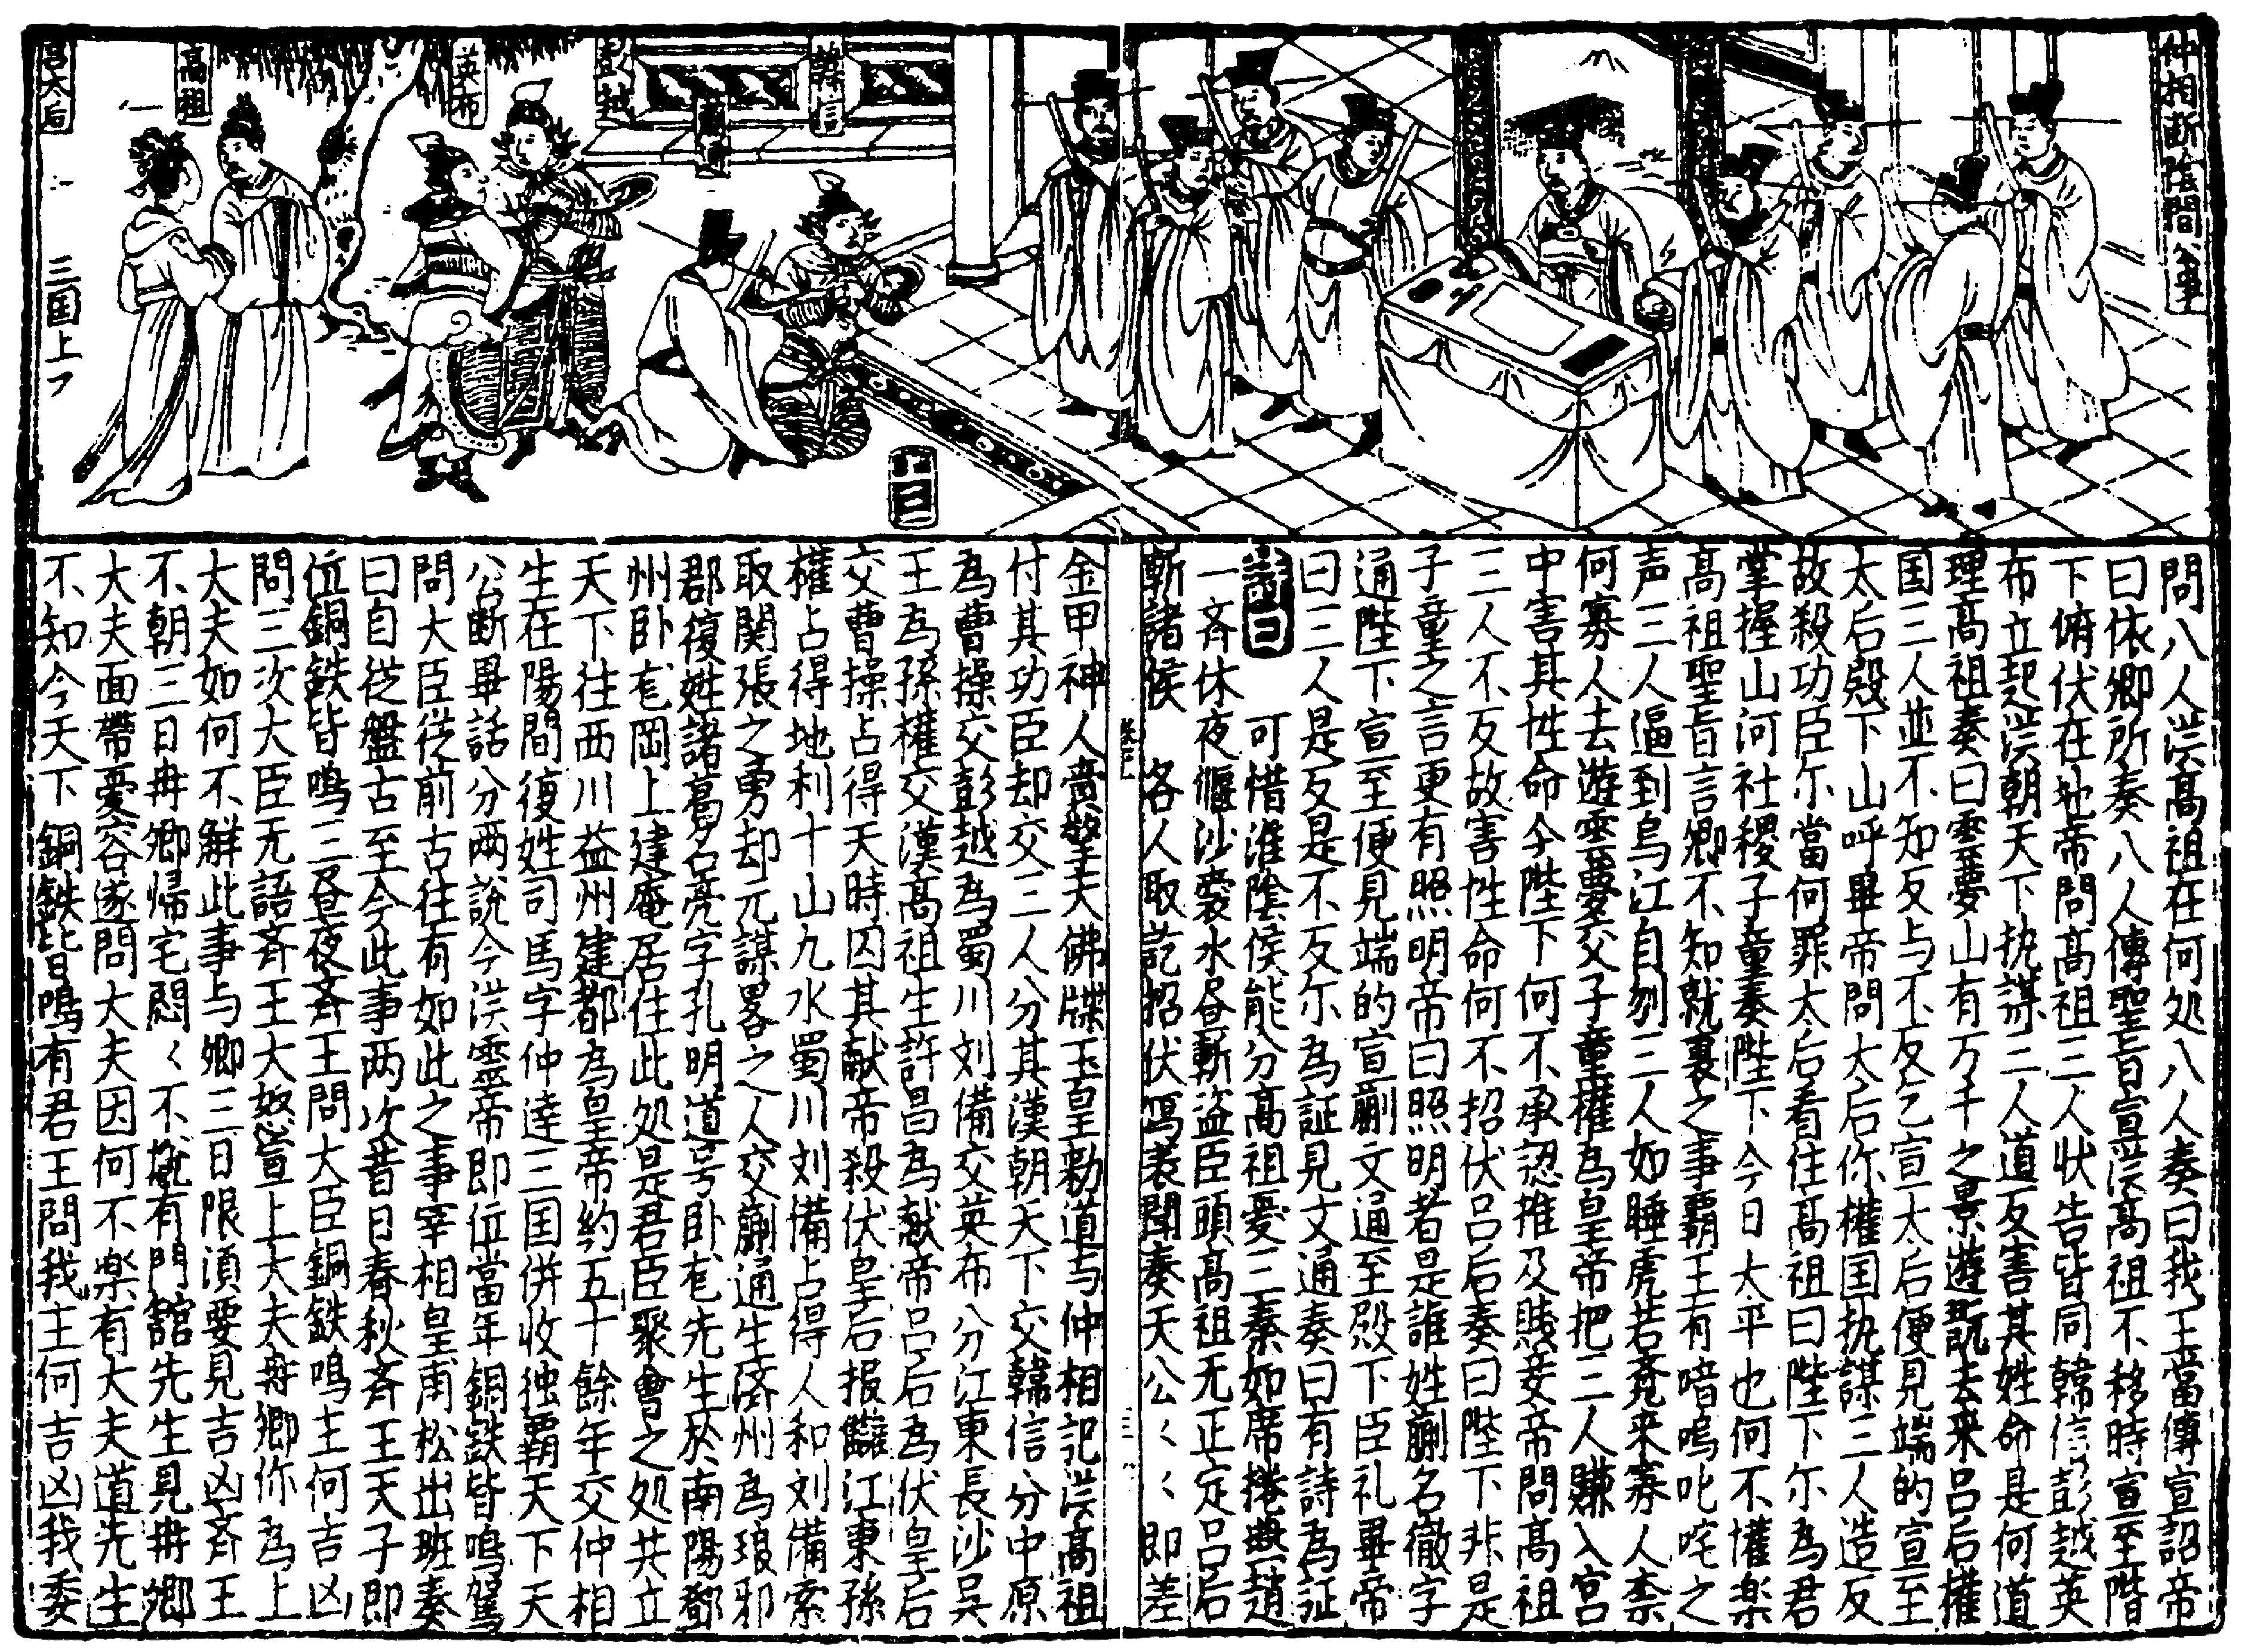 仲相断陰間公事
韓信
蒯通
彭越
英布
高祖
呂太后
三国上
問八人漢高祖在何処八人奏曰我王當傳宣詔帝
曰依卿所奏八人傳聖旨宣漢高祖不移時宣至階
下俯伏在地帝問高祖三人状告皆同韓信彭越英
布立起漢朝天下执謀三人道反害其姓命是何道
理高祖奏曰雲夢山有万千之景遊翫去来呂后權
国三人並不知反与不反乞宣太后便見端的宣至
太后殿下山呼畢帝問太后你權国执謀三人造反
故殺功臣尔當何罪太后看住高祖曰陛下尔為君
掌握山河社稷子童奏陛下今日太平也何不懽楽
高祖聖旨言卿不知就裏之事霸王有喑嗚叱咤之
声三人逼到烏江自刎三人如睡虎若竟来寡人柰
何寡人去遊雲夢交子童權為皇帝把三人賺入宮
中害其性命今陛下何不承認推及賤妾帝問高祖
三人不反故害性命何不招伏呂后奏曰陛下非是
子童之言更有照明帝曰照明者是誰姓蒯名徹字
通陛下宣至便見端的宣蒯文通至殿下臣礼畢帝
曰三人是反是不反尔為証見文通奏曰有詩為証
詩曰
可惜淮陰侯能分高祖憂三秦如席捲燕趙
一斉休夜偃沙囊水昼斬盗臣頭高祖无正定呂后
斬諸侯　各人取訖招伏写表聞奏天公〻〻即差
金甲神人賫擎天佛牒玉皇勅道与仲相記漢高祖
付其功臣却交三人分其漢朝天下交韓信分中原
為曹操交彭越為蜀川刘備交英布分江東長沙吴
王為孫權交漢高祖生許昌為献帝呂后為伏皇后
交曹操占得天時囚其献帝殺伏皇后报讎江東孫
權占得地利十山九水蜀川刘備占得人和刘備索
取関張之勇却无謀畧之人交蒯通生済州為琅邪
郡復姓諸葛名亮字孔明道号卧龙先生於南陽鄧
州卧龙岡上建庵居住此処是君臣聚會之処共立
天下往西川益州建都為皇帝約五十餘年交仲相
生在陽間復姓司馬字仲達三国併收独覇天下天
公断畢話分两說今漢霊帝即位當年銅鉄皆鳴駕
問大臣従前古往有如此之事宰相皇甫松出班奏
曰自従盤古至今此事两次昔日春秋斉王天子即
位銅鉄皆鳴三昼夜斉王問大臣銅鉄鳴主何吉凶
問三次大臣无語斉王大怒宣上大夫冉卿你為上
大夫如何不解此事与卿三日限須要見吉凶斉王
不朝三日冉卿帰宅悶〻不㦧有門舘先生見冉卿
大夫面帶憂容遂問大夫因何不楽有大夫道先生
不知今天下銅鉄皆鳴有君王問我主何吉凶我委